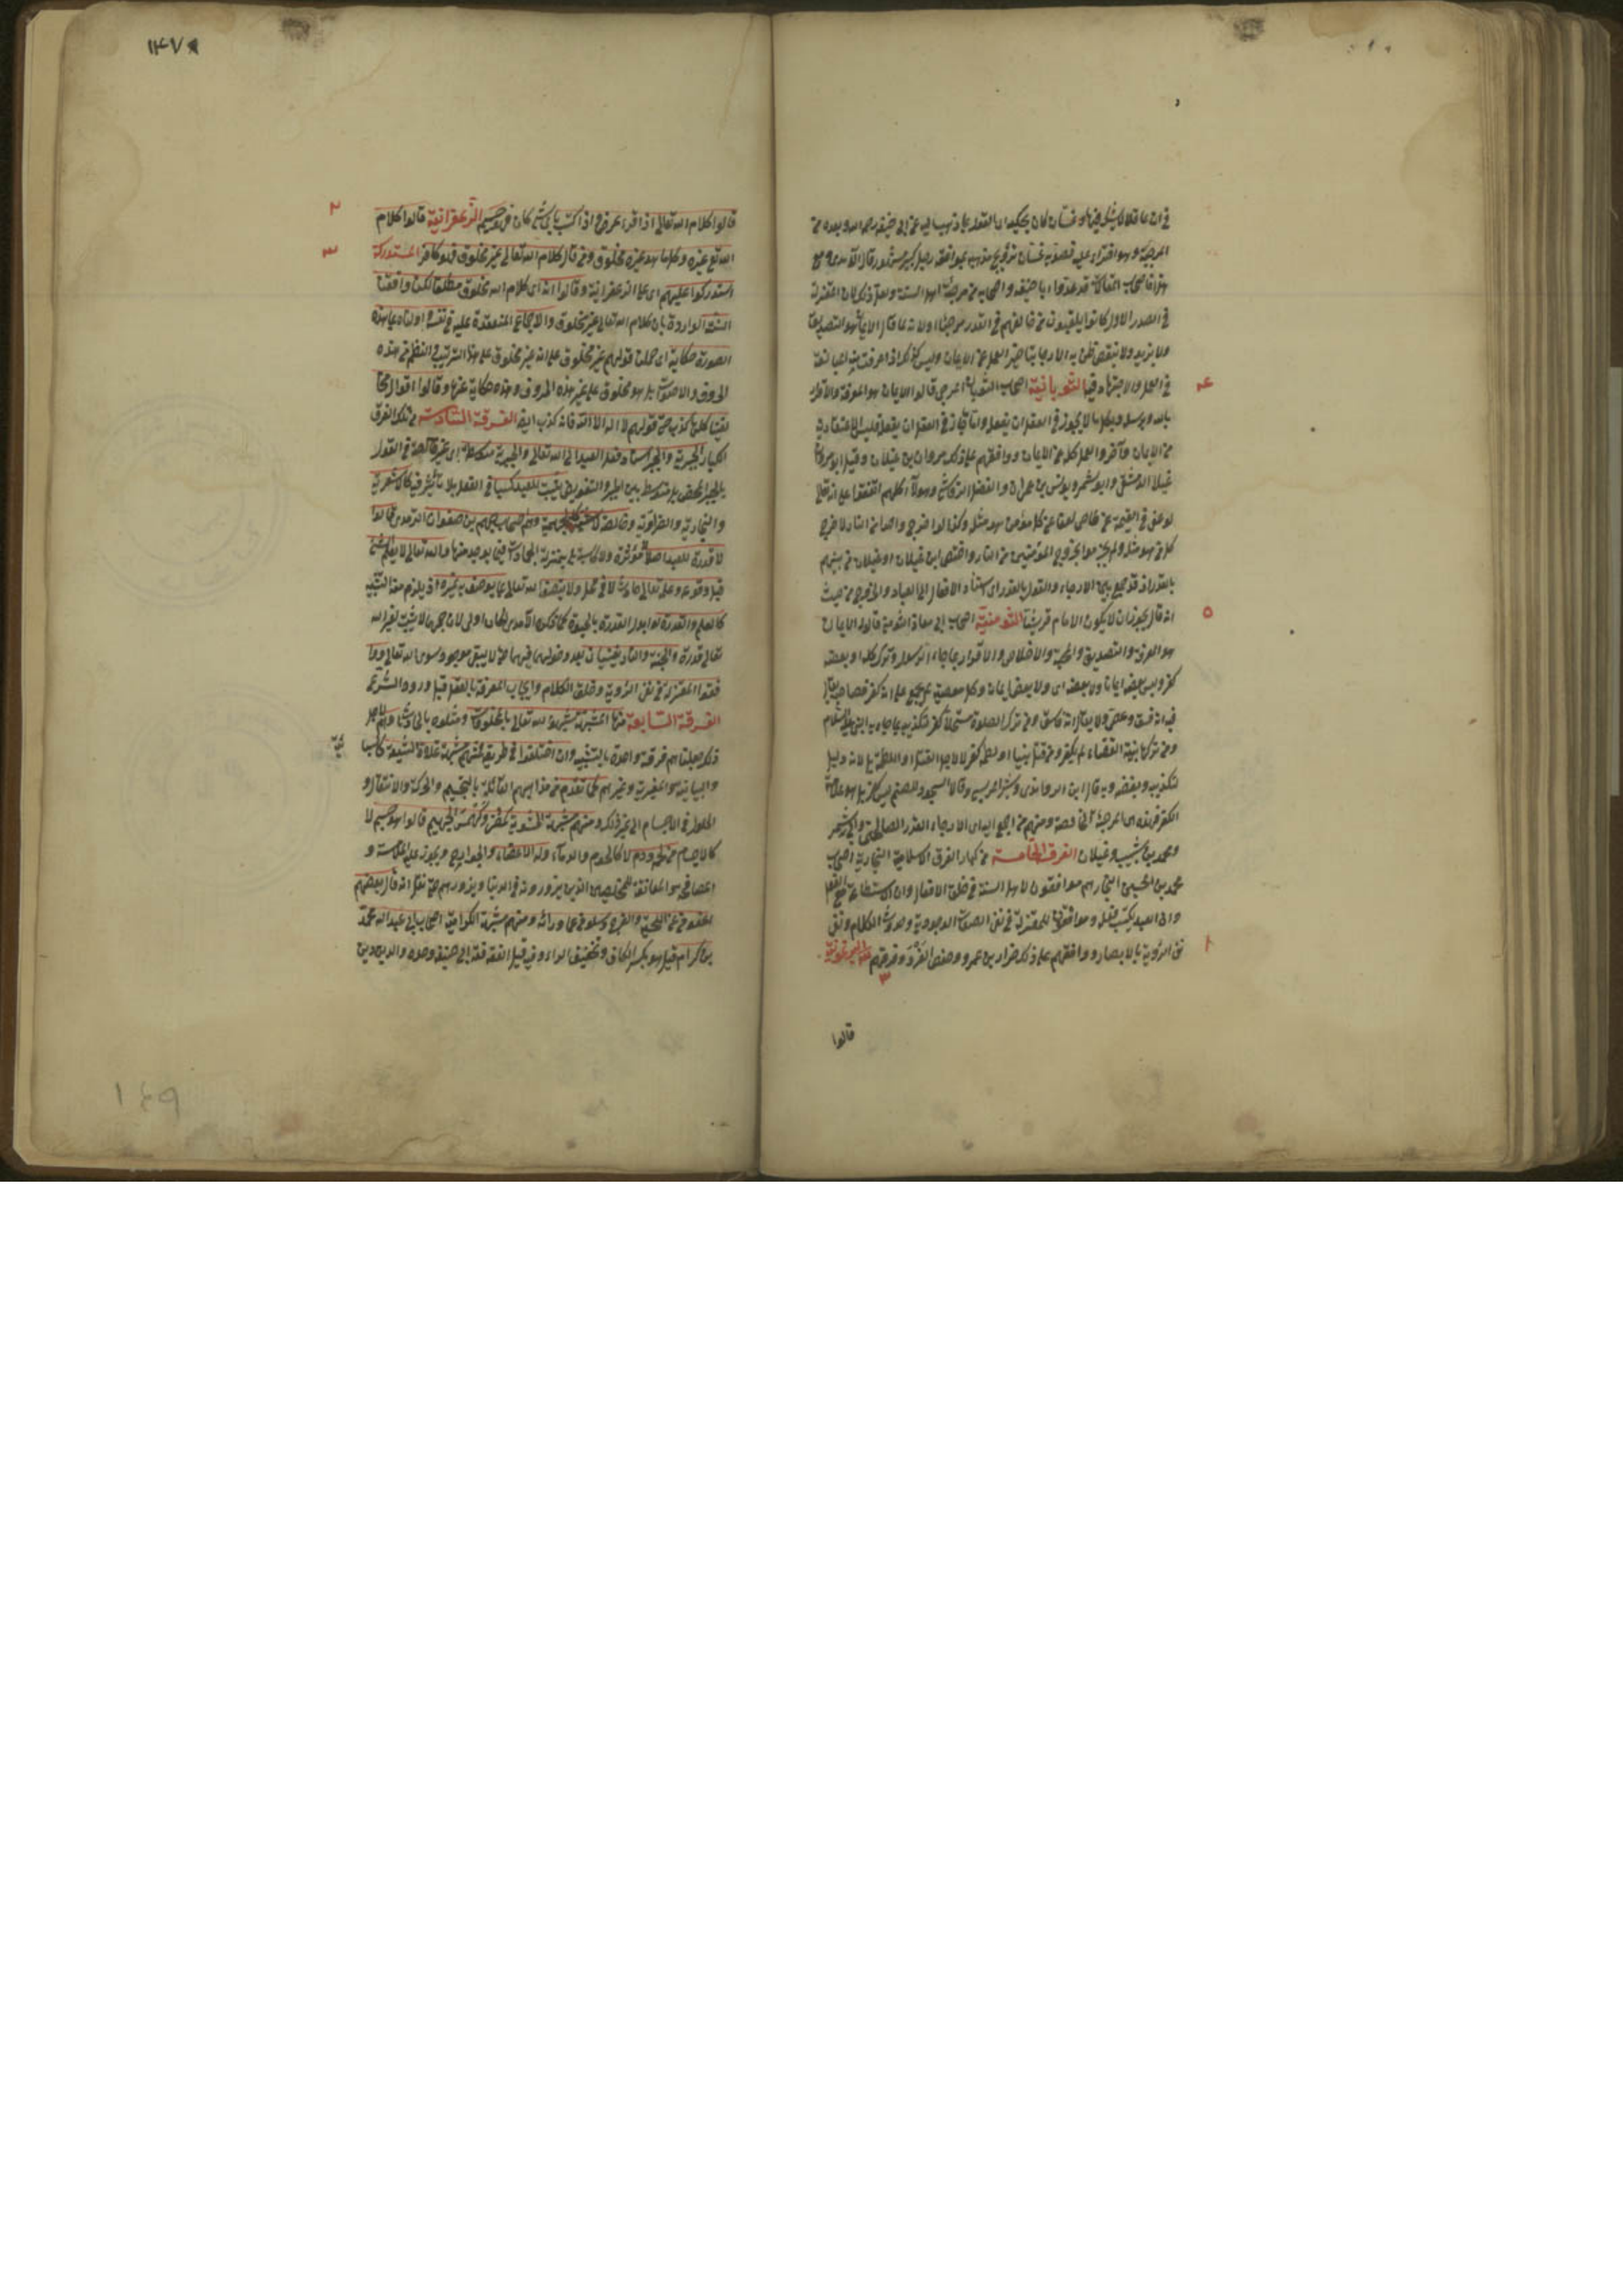 في ان عاقلا لا يشك فيها وغسان كان يحكيه اى القول بما ذهب اليه عن ابى حنيفة رحمه الله ويعده من
المرجئة وهو افتراء عليه قصد به غسان ترويج مذهبه بموافقة رجل كبير مشهور قال الآمدى ومع
هذا فاصحاب المقالات قد عدوا ابا حنيفة واصحابه من مرجئة اهل السنة ولعل ذلك لان المعتزلة
في الصدر الاول كانوا يلقبون من خالفهم في القدر مرجئا او لانه لما قال الايمان هو التصديق
ولا يزيد ولا ينقص ظن به الارجاء بتاخير العمل عن الايمان وليس كذلك اذ عرف منه المبالغة
في العمل والاجتهاد فيه الثوبانية اصحاب الثوبان المرجئ قالوا الايمان هو المعرفة والاقرار
بالله وبرسله وبكل ما لا يجوز في العقل ان يفعله واما ما جاز في العقل ان يفعله فليس الاعتقاد به
من الايمان واخروا العمل كله عن الايمان ووافقهم على ذلك مروان بن غيلان وقيل ابو مروان
غيلان الدمشقى وابو شمر ويونس بن عمران والفضل الرقاشى وهولاء كلهم اتفقوا على انه تعالى
لو عفى في القيمة عن عاص لعفا عن كل مؤمن هو مثله وكذا لو اخرج واحدا من النار لاخرج
كل من هو مثله ولم يجزموا بخروج المؤمنين من النار واختص ابن غيلان او غيلان من بينهم
بالقدر اذ قد جمع بين الارجاء والقول بالقدر اى اسناد الافعال الى العباد والخروج من حيث
انه قال يجوز ان لا يكون الامام قرشيا التومنية اصحاب ابى معاذ التومنى قالوا الايمان
هو المعرفة والتصديق والمحبة والاخلاص والاقرار بما جاء به الرسول وترك كله او بعضه
كفر وليس بعضه ايمانا ولا بعضه اى ولا بعض ايمان وكل معصية لم يجمع على انه كفر فصاحبه يقال
فيه انه فسق وعصى ولا يقال انه فاسق ومن ترك الصلوة مستحلا كفر لتكذيبه بما جاء به النبى عليه السلام
ومن تركها بنية القضاء لم يكفر ومن قتل نبيا او لطمه كفر لا لاجل القتل او اللطمة بل لانه دليل
لتكذيبه وبغضه وبه قال ابن الراوندى وبشر المريسى وقالا السجود للصنم ليس بكفر بل هو علامة
الكفر فهذه هى المرجئة الخالصة ومنهم من جمع الى الارجاء القدر الصالحى وابى شمر
ومحمد بن شبيب وغيلان الفرقة الخامسة من كبار الفرق الاسلامية النجارية اصحاب
محمد بن الحسين النجار هم موافقون لاهل السنة في خلق الافعال وان الاستطاعة مع الفعل
وان العبد يكتسب فعله وموافقون للمعتزلة في نفى الصفات الوجودية وحدوث الكلام ونفى
نفى الرؤية بالابصار ووافقهم على ذلك ضرار بن عمرو وحفص الفرد وفرقهم ثلث البرغوثية
قالوا
قالوا كلام الله تعالى اذا قرئ عرض واذا كتب باى شئ كان فهو جسم الزعفرانية قالوا كلام
الله تع غيره وكل ما هو غيره مخلوق ومن قال كلام الله تعالى غير مخلوق فهو كافر المستدركة
استدركوا عليهم اى على الزعفرانية وقالوا انه اى كلام الله مخلوق مطلقا لكنا وافقنا
السنة الواردة بان كلام الله تعالى غير مخلوق والاجماع المنعقدة عليه في نفيه اولناه بما هذه
الصورة حكاية اى حملنا قولهم غير مخلوق على انه غير مخلوق على هذا الترتيب والنظم من هذه
الحروف والاصوات بل هو مخلوق على غير هذه الحروف وهذه حكاية عنها وقالوا اقوال مخا
لفينا كلها كذب حتى قولهم لا اله الا الله فانه كذب ايضا الفرقة السادسة من تلك الفرق
الكبار الجبرية والجبر اسناد فعل العبد الى الله تعالى والجبرية متوسطة اى غير خالصة في القول
بالجبر المحض بل متوسط بين الجبر والتفويض يثبت للعبد كسبا في الفعل بلا تأثير فيه كالاشعرية
والنجارية والضرارية وخالصة لا تثبته كالجهمية وهم اصحاب جهم بن صفوان الترمذى قالوا
لا قدرة للعبد اصلا لا مؤثرة ولا كاسبة بل بمنزلة الجمادات فيما يوجد منها والله تعالى لا يعلم الشئ
قبل وقوعه وعلمه تعالى حادث لا في محل ولا يتصف الله تعالى بما يوصف به غيره اذ يلزم منه التشبيه
كالعلم والقدرة لو ابدل القدرة بالحيوة كما ذكره الآمدى لكان اولى لان جهما لا يثبت لغير الله
تعالى قدرة والجنة والنار تفنيان بعد دخول اهلهما فيهما حتى لا يبقى موجود سوى الله تعالى ووا
فقوا المعتزلة في نفى الرؤية وخلق الكلام وايجاب المعرفة بالعقل قبل ورود الشرع
الفرقة السابعة منها المشبهة شبهوا الله تعالى بالمخلوقات ومثلوه بالحادثات ولاجل
ذلك جعلناهم فرقة واحدة بالتشبيه وان اختلفوا في طريقه فمنهم مشبهة غلاة الشيعة كالسبا
ئية
والبيانية والمغيرية وغيرهم كما تقدم من مذاهبهم القائلة بالتجسيم والحركة والانتقال و
الحلول في الاجسام الى غير ذلك ومنهم مشبهة الحشوية كمضر وكهمس والهجيمى قالوا هو جسم لا
كالاجسام من لحم ودم لا كاللحوم والدماء وله الاعضاء والجوارح ويجوز عليه الملامسة و
المصافحة والمعانقة للمخلصين الذين يزورونه في الدنيا ويزورهم حتى نقل انه قال بعضهم
اعفونى عن اللحية والفرج وسلونى عما ورائه ومنهم مشبهة الكرامية اصحاب ابى عبد الله محمد
بن كرام قيل هو بكسر الكاف وتخفيف الراء وفيه قيل الفقه فقه ابى حنيفة وحده والدين دين